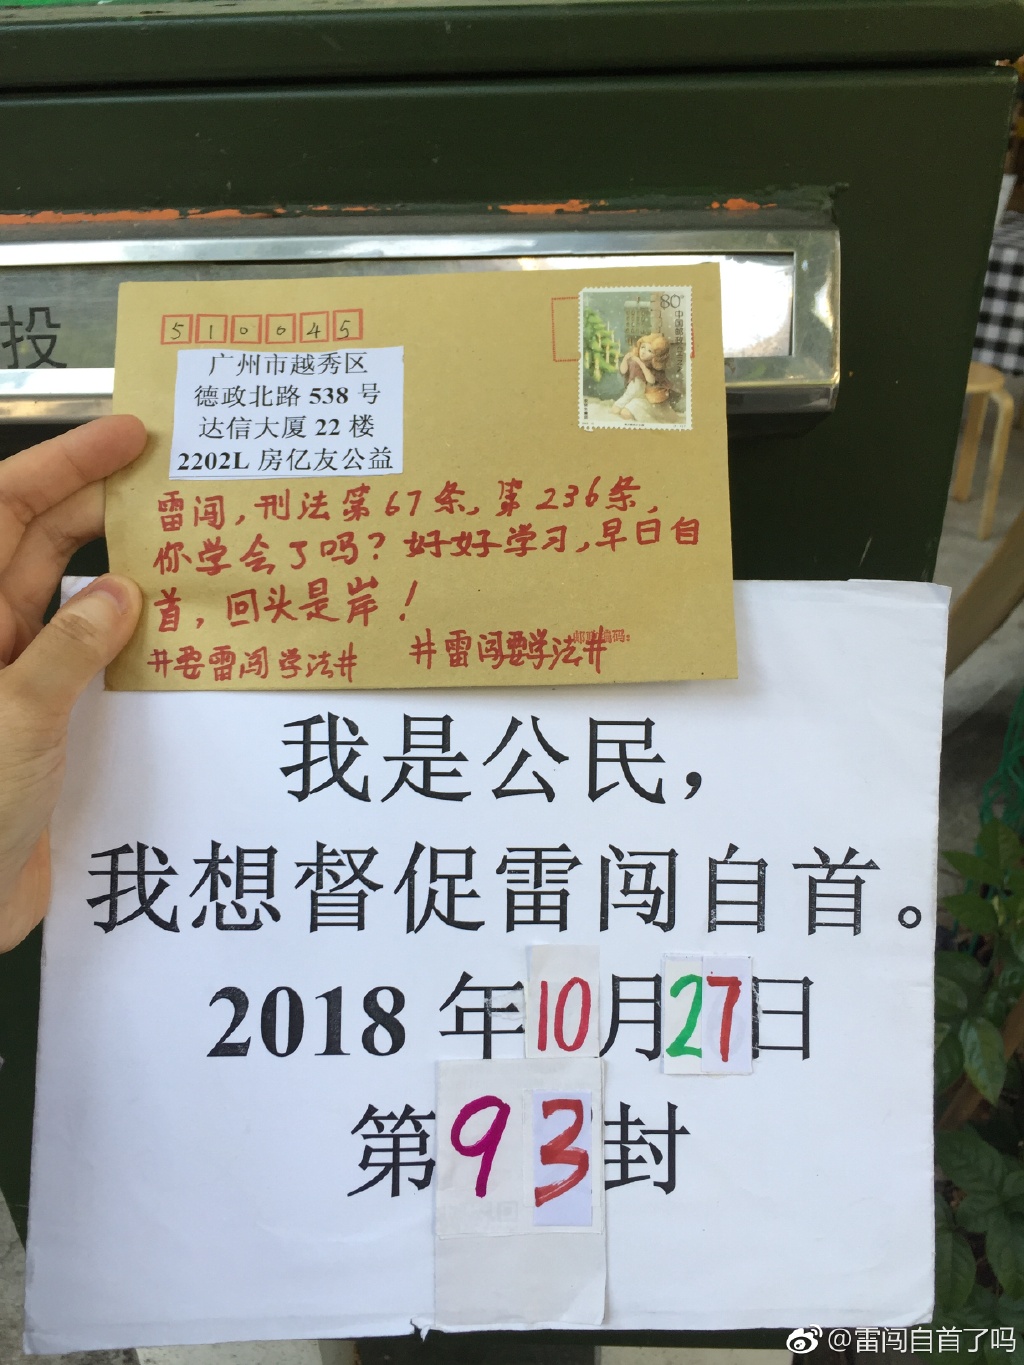 投
510045
80分
中国邮政
广州市越秀区
德政北路 538 号
达信大厦 22 楼
2202L 房亿友公益
雷闯，刑法第67条，第236条，
你学会了吗？好好学习，早日自
首，回头是岸！
邮政编码：
#要雷闯学法# #雷闯要学法#
我是公民，
我想督促雷闯自首。
2018 年10月27日
第93封
@雷闯自首了吗